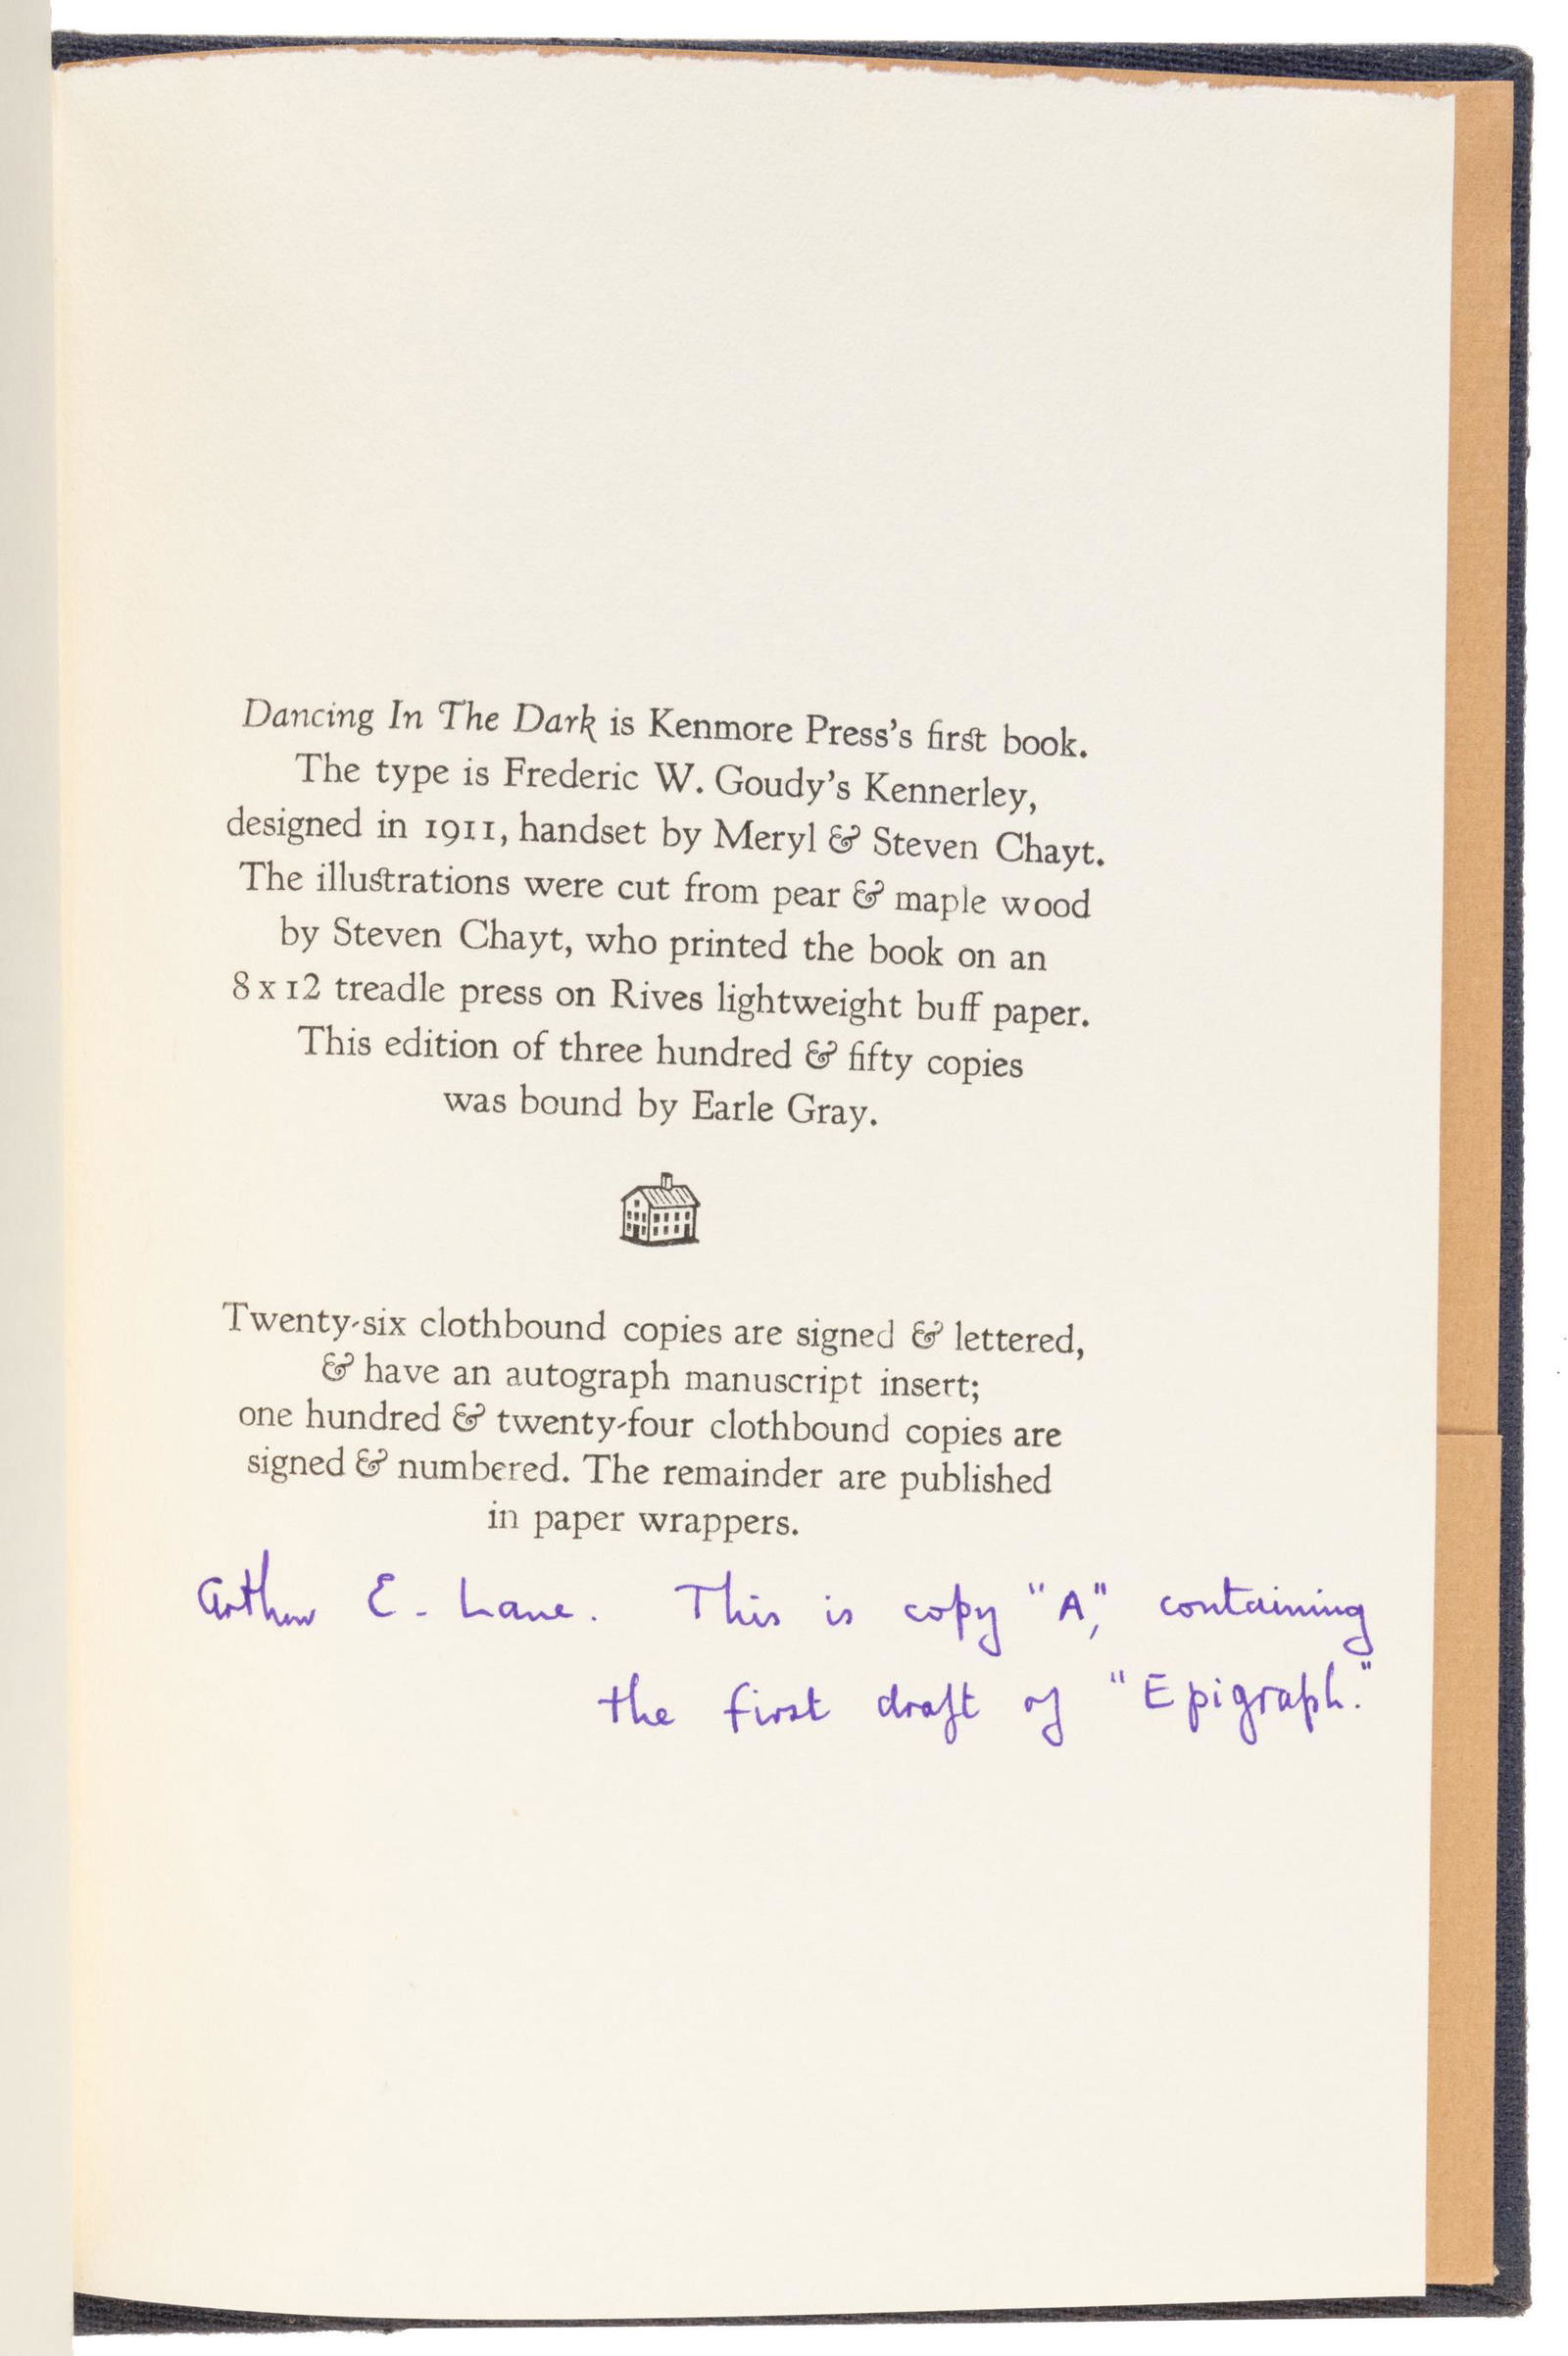 Dancing In The Dark is Kenmore Press's first book.
The type is Frederic W. Goudy's Kennerley,
designed in 1911, handset by Meryl & Steven Chayt.
The illustrations were cut from pear & maple wood
by Steven Chayt, who printed the book on an
8 x 12 treadle press on Rives lightweight buff paper.
This edition of three hundred & fifty copies
was bound by Earle Gray.
Twenty-six clothbound copies are signed & lettered,
& have an autograph manuscript insert;
one hundred & twenty-four clothbound copies are
signed & numbered. The remainder are published
in paper wrappers.
Arthur E. Lane. This is copy "A," containing
the first draft of "Epigraph."